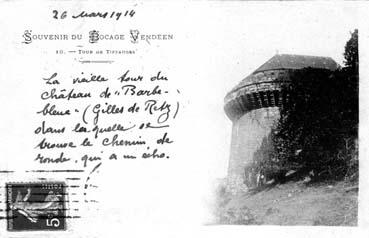 26 Mars 1914
SOUVENIR DU BOCAGE VENDEEN
10. — TOUR DE TIFFAUGES
La vieille tour du
château de "Barbe-
bleue" (Gilles de Retz)
dans laquelle se
trouve le chemin de
ronde, qui a un écho.
POSTES
5